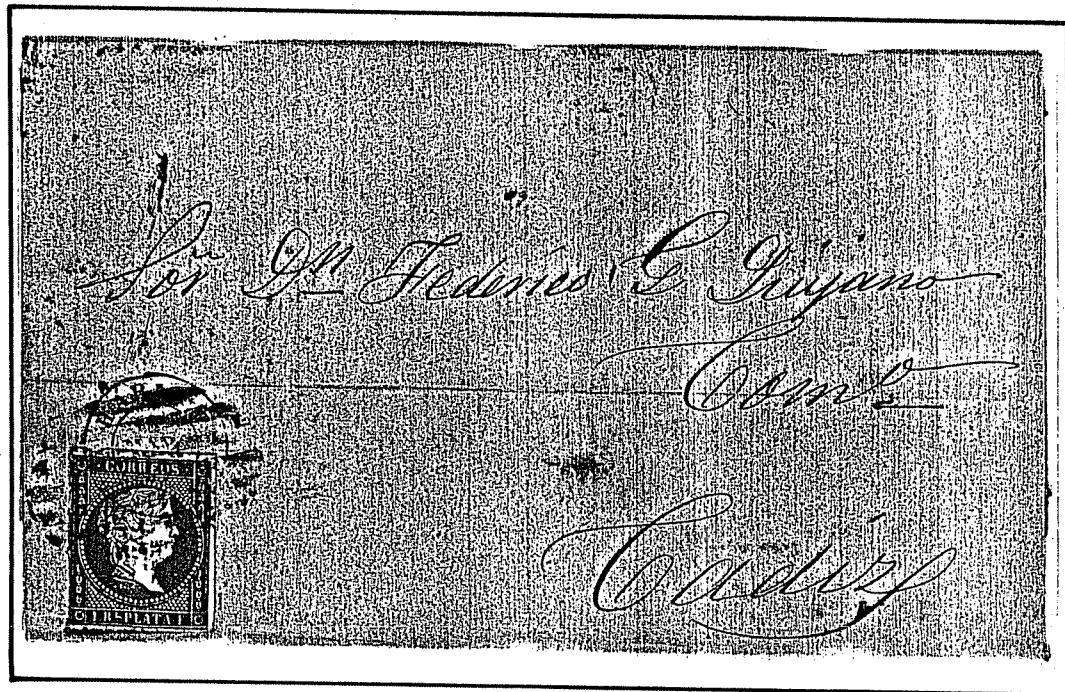 Sor Dn Federico G Quijano
Comº
Cadiz
CORREOS
1 RL PLATA F